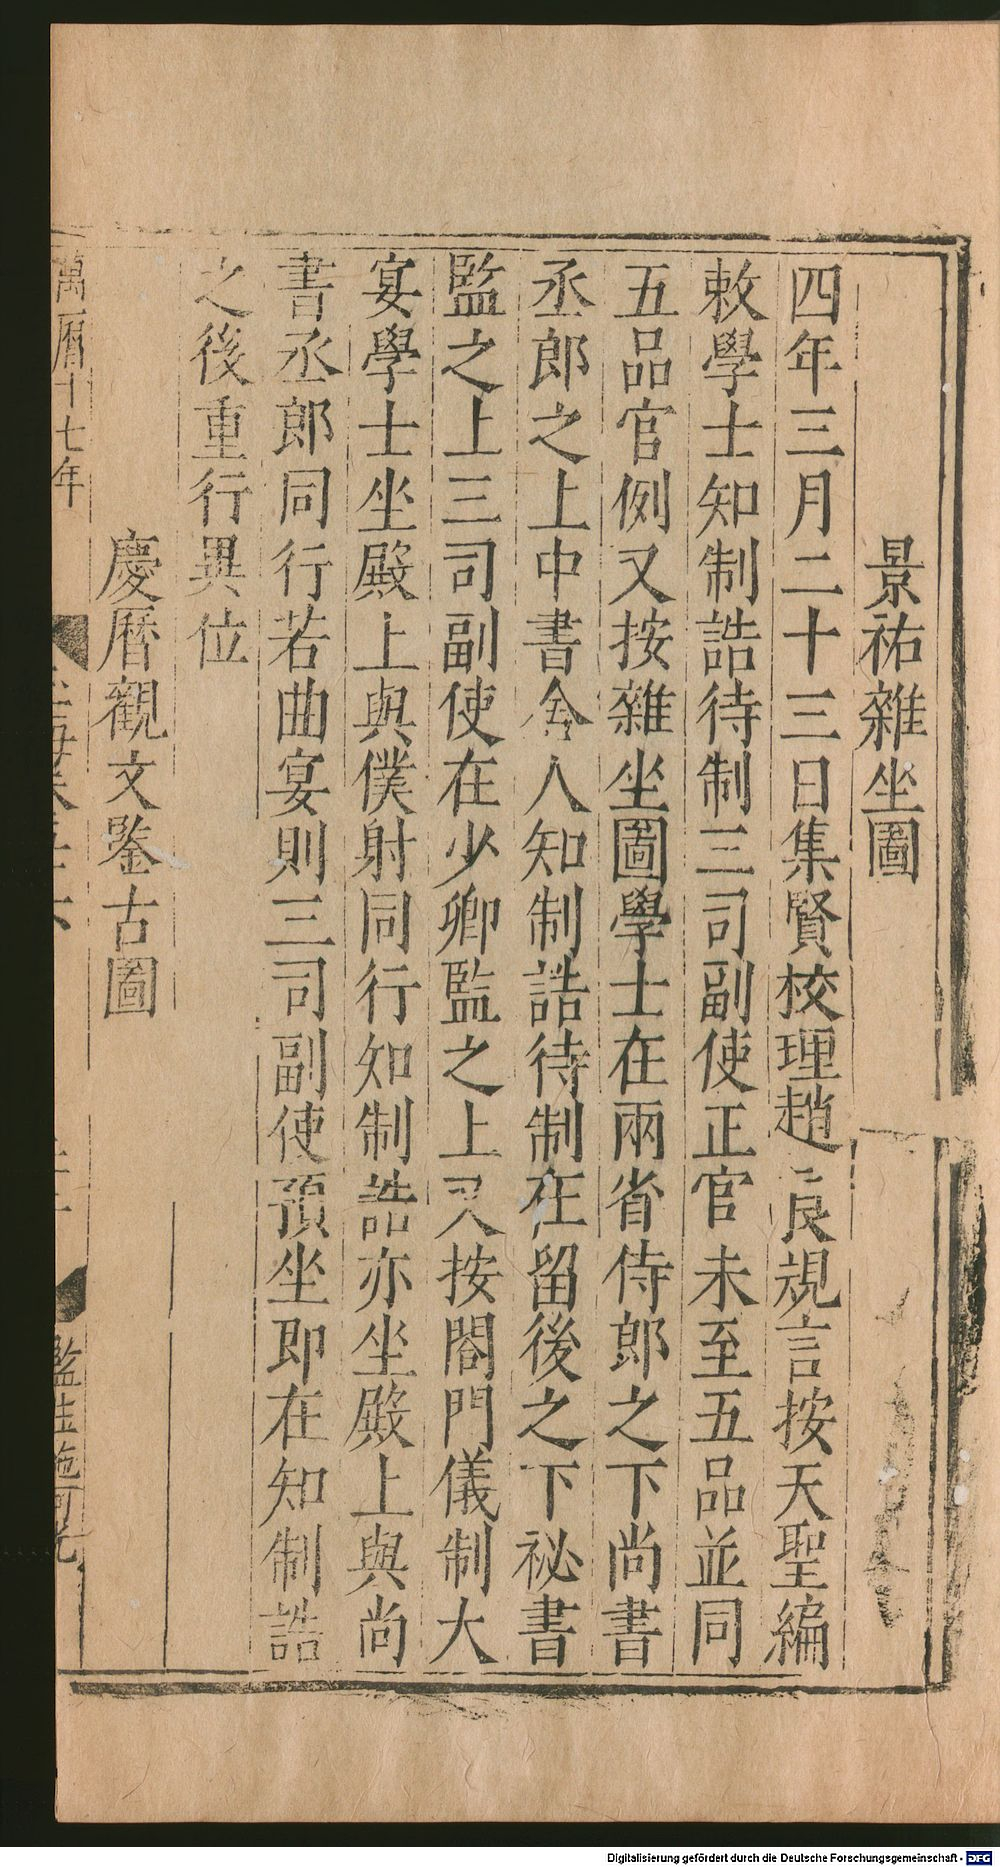 景祐雜坐圖
四年三月二十三日集賢校理趙良規言按天聖編
敕學士知制誥待制三司副使正官未至五品並同
五品官例又按雜坐圖學士在兩省侍郎之下尚書
丞郎之上中書舍人知制誥待制在留後之下祕書
監之上三司副使在少卿監之上又按閤門儀制大
宴學士坐殿上與僕射同行知制誥亦坐殿上與尚
書丞郎同行若曲宴則三司副使預坐即在知制誥
之後重行異位
慶曆觀文鑒古圖
萬曆十七年
玉海卷五十六
監生施可允
Digitalisierung gefördert durch die Deutsche Forschungsgemeinschaft - DFG